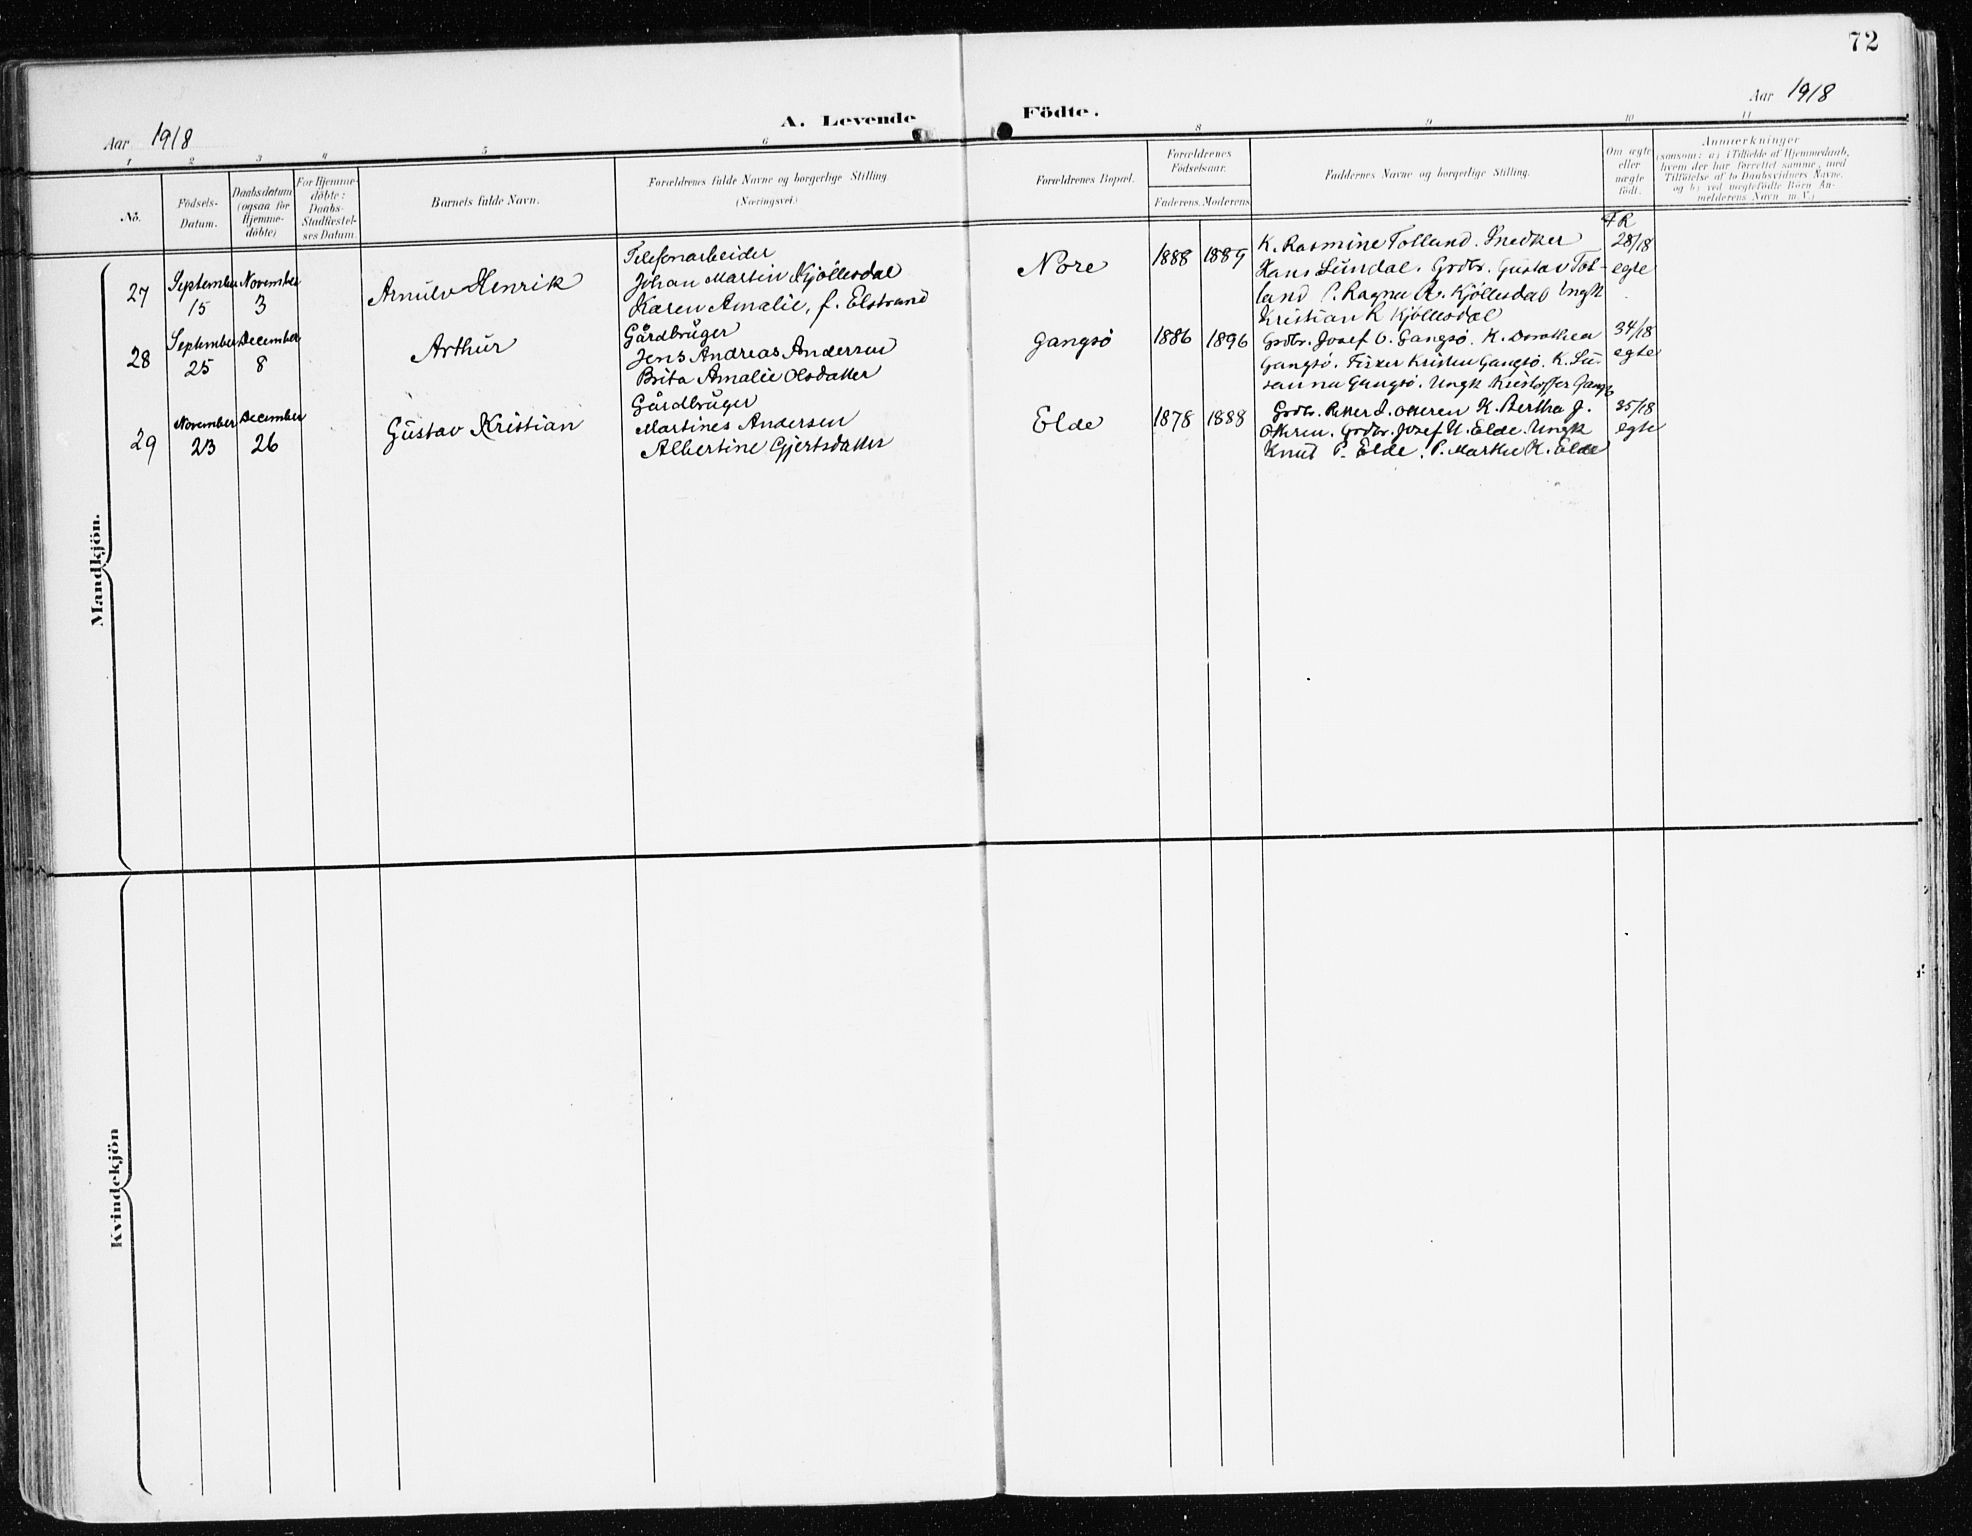 72
Aar 1918
A. Levende Födte.
Aar 1918
1 2 3 4 5 6 8 9 10 11
No.
Födsels-
Datum.
Daabsdatum
(ogsaa for
Hjemme-
döbte)
For Hjemme-
döbte:
Daabs-
Stadfæstel-
ses Datum.
Barnets fulde Navn.
Forældrenes fulde Navne og borgerlige Stilling.
(Næringsvei.)
Forældrenes Bopæl.
Forældrenes
Födselsaar.
Faderens. Moderens.
Faddernes Navne og borgerlige Stilling.
Om ægte
eller
uægte
födt.
Anmærkninger
(saasom: a) i Tilfælde af Hjemmedaab,
hvem der har forrettet samme, med
Tilföielse af to Daabsvidners Navne,
og b) ved uægtefödte Börn An-
melderens Navn m. V.)
Mandkjön.
27
September
15
November
3
Arnulv Henrik
Telefonarbeider
Johan Martin Kjöllesdal
Karen Amalie, f. Elstrand
Nore
1888 1889
K. Rasmine Tolland. Snedker
Hans Lundal. Grdbr. Gustav Tol-
land P. Ragna R. Kjöllesdal Ungk
Kristian R Kjöllesdal
FR
28/18
egte
28
September
25
December
8
Arthur
Gårdbruger
Jens Andreas Andersen
Brita Amalie Olsdatter
Gangsö
1886 1896
Grdbr. Josef O. Gangsö. K. Dorothea
Gangsö. Fisker Kristen Gangsö. K. Su-
sanna Gangsö. Ungk Kristoffer Gangsö
34/18
egte
29
November
23
December
26
Gustav Kristian
Gårdbruger
Martines Andersen
Albertine Gjertsdatter
Elde
1878 1888
Grdbr. Petter J. Otteren K. Bertha J.
Otteren. Grdbr. Josef U. Elde. Ungk
Knut P. Elde. P. Marthe K. Elde
35/18
egte
Kvindekjön